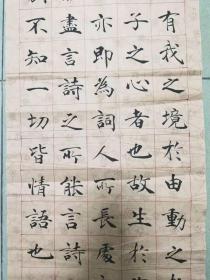 有我之境於由動之
子之心者也故生於
亦即為詞人所長處
盡言詩之所能言詩
不知一切皆情語也